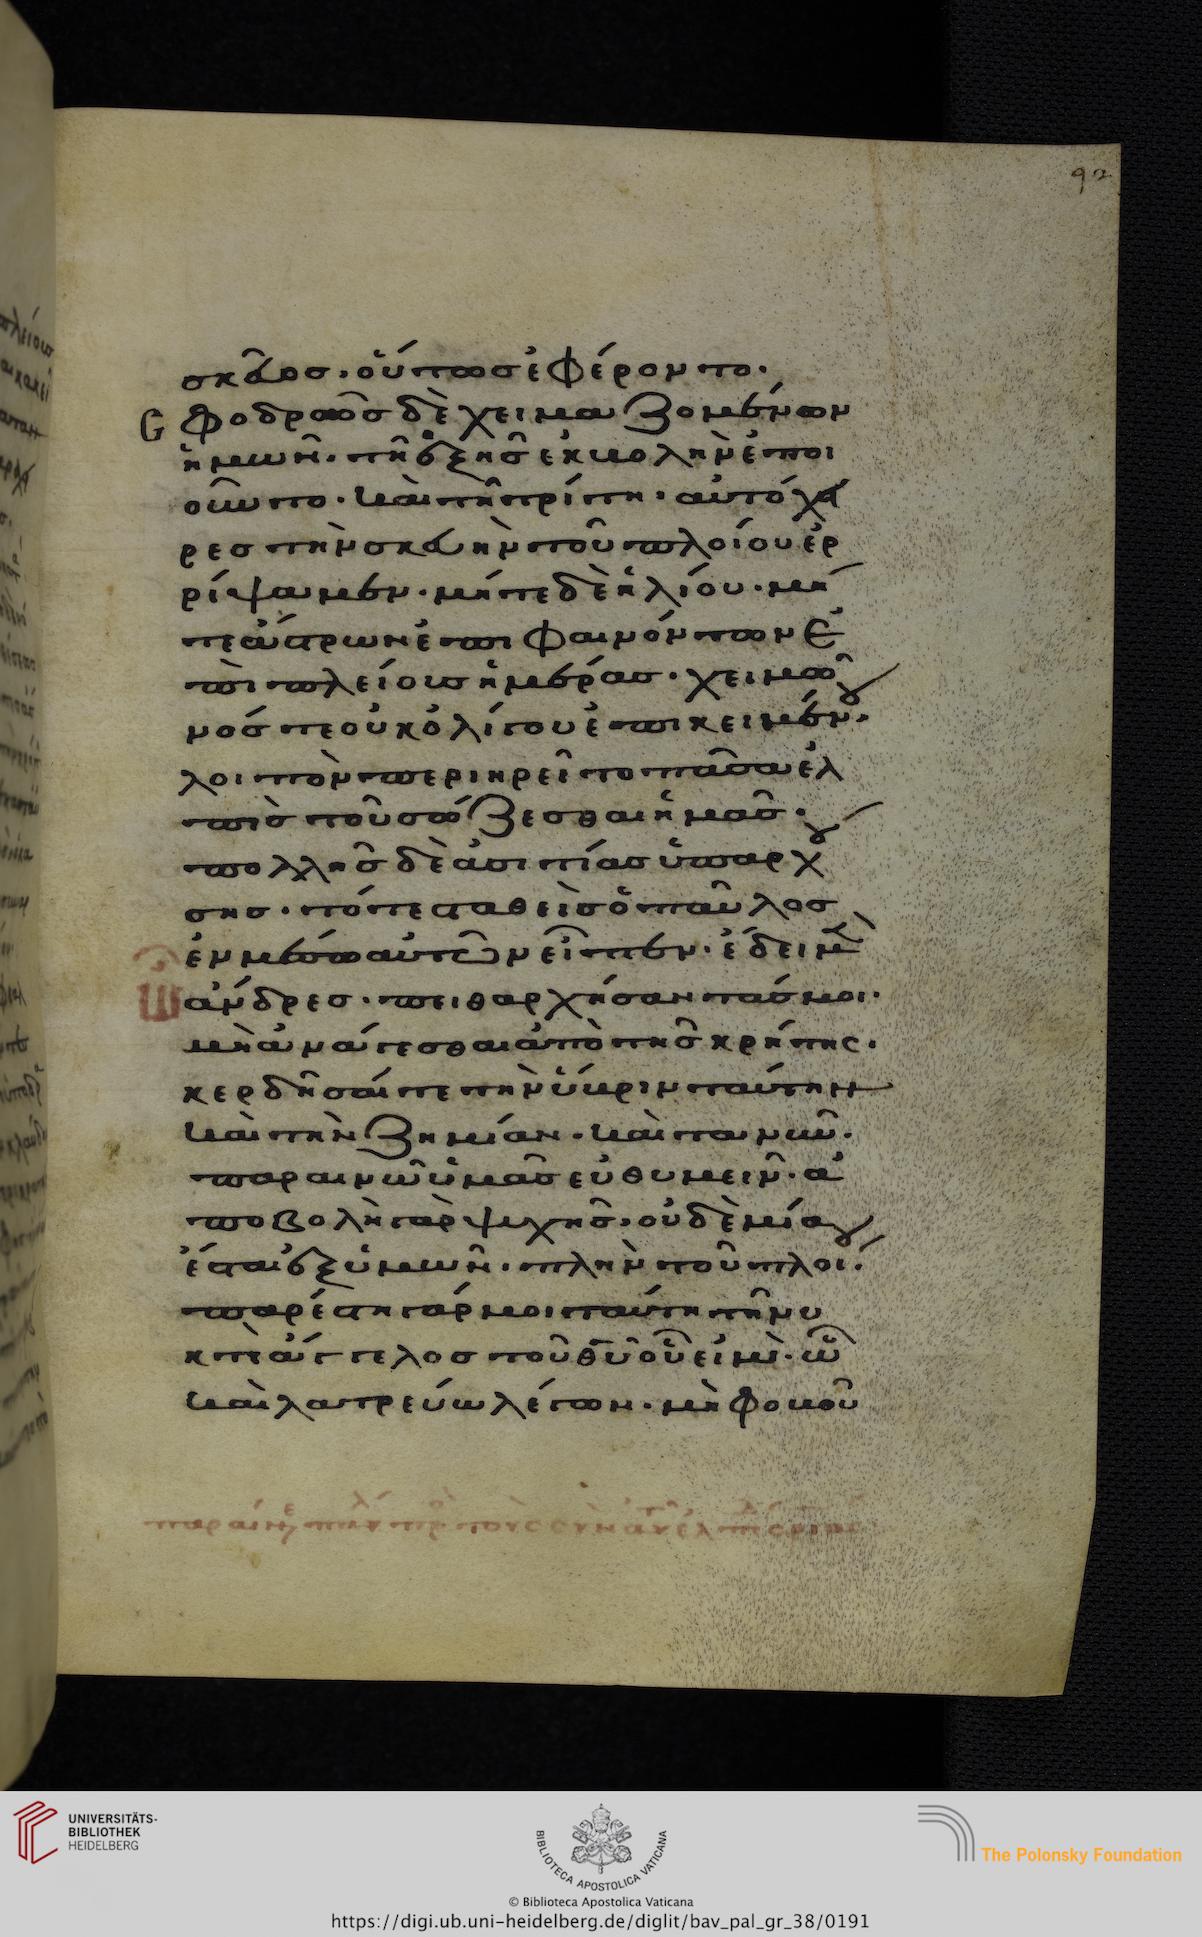 92
σκεῦος· οὕτως ἐφέροντο·
Σφοδρῶς δὲ χειμαζομένων
ἡμῶν· τῇ ἑξῆς ἐκβολὴν ἐποι
οῦντο· καὶ τῇ τρίτῃ· αὐτόχει
ρες τὴν σκευὴν τοῦ πλοίου ἐρ
ρίψαμεν· μήτε δὲ ἡλίου· μή
τε ἄστρων ἐπιφαινόντων ἐ
πὶ πλείους ἡμέρας· χειμῶ
νός τε οὐκ ὀλίγου ἐπικειμέν·
λοιπὸν περιῃρεῖτο πᾶσα ἐλ
πὶς τοῦ σώζεσθαι ἡμᾶς·
πολλῆς δὲ ἀσιτίας ὑπαρχού
σης· τότε σταθεὶς ὁ παῦλος
ἐν μέσω αὐτῶν εἶπεν· ἔδει μὲν
ὦ ἄνδρες· πειθαρχήσαντάς μοι·
μὴ ἀνάγεσθαι ἀπὸ τῆς κρήτης·
κερδῆσαί τε τὴν ὕβριν ταύτην
καὶ τὴν ζημίαν· καὶ τανῦν·
παραινῶ ὑμᾶς εὐθυμεῖν· ἀ
ποβολὴ γὰρ ψυχῆς· οὐδὲ μία
ἔσται ἐξ ὑμῶν· πλὴν τοῦ πλοί·
παρέστη γάρ μοι ταύτη τῇ νυ
κτὶ ἄγγελος τοῦ θυ οὗ εἰμὶ· ᾧ
καὶ λατρεύω λέγων· μὴ φοβοῦ
UNIVERSITÄTS-
BIBLIOTHEK
HEIDELBERG
BIBLIOTECA APOSTOLICA VATICANA
© Biblioteca Apostolica Vaticana
The Polonsky Foundation
https://digi.ub.uni-heidelberg.de/diglit/bav_pal_gr_38/0191